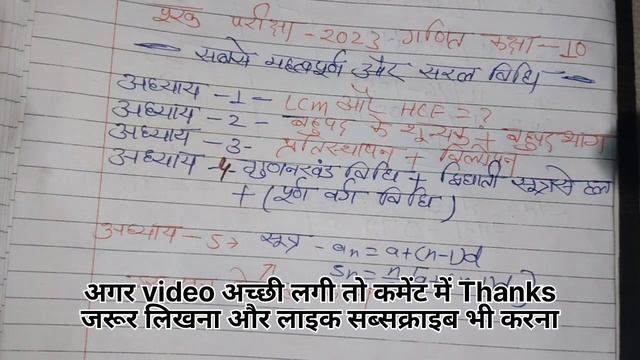 परीक्षा - 2023 - गणित कक्षा - 10
सबसे महत्वपूर्ण और सरल विधि
अध्याय - 1 - LCM और HCF = ?
अध्याय - 2 - बहुपद के शून्यक + बहुपद भाग
अध्याय - 3 - प्रतिस्थापन + विलोपन
अध्याय - 4 - गुणनखंड विधि + द्विघाती सूत्र से हल
+ (पूर्ण वर्ग विधि)
अध्याय - 5 → सूत्र - an = a+(n-1)d
Sn = n
अगर video अच्छी लगी तो कमेंट में Thanks
जरूर लिखना और लाइक सब्सक्राइब भी करना